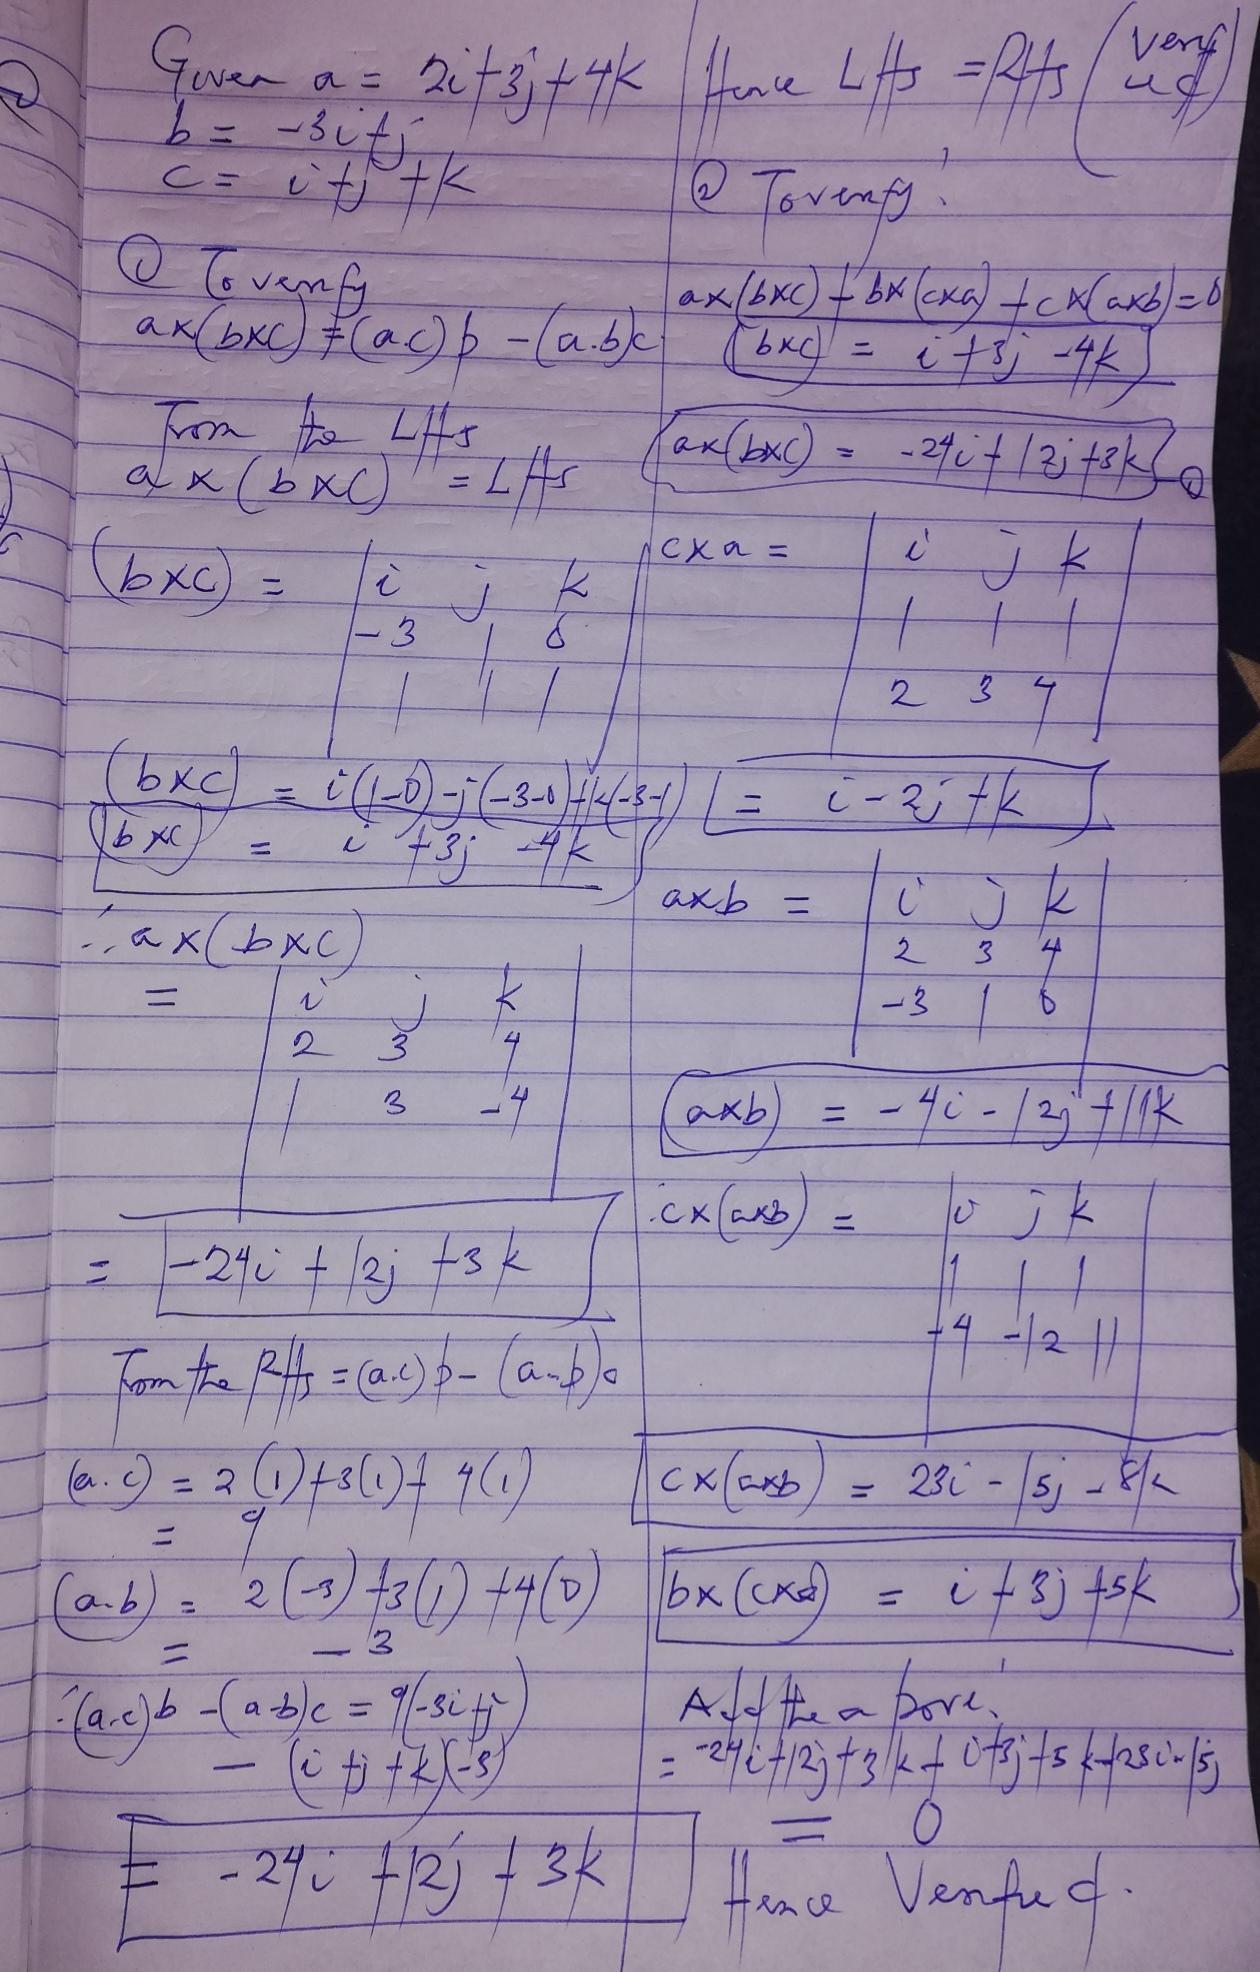 Given a = 2i+3j+4k
b = -3i+j
c = i+j+k
① To verify
ax(bxc) = (a.c)b - (a.b)c
From the LHS
a x (bxc) = LHS
(bxc) = | i j k |
| -3 1 0 |
| 1 1 1 |
(bxc) = i(1-0)-j(-3-0)+k(-3-1)
(bxc) = i +3j -4k
∴ a x (bxc)
= | i j k |
| 2 3 4 |
| 1 3 -4 |
= -24i + 12j +3k
From the RHS = (a.c)b - (a.b)c
(a.c) = 2(1)+3(1)+4(1)
= 9
(a.b) = 2(-3)+3(1)+4(0)
= -3
∴(a.c)b - (a.b)c = 9(-3i+j)
- (i+j+k)(-3)
= -24i +12j + 3k
Hence LHS = RHS (verified)
② To verify:
ax(bxc) + bx(cxa) + cx(axb)=0
(bxc) = i+3j-4k
ax(bxc) = -24i+12j+3k -①
cxa = | i j k |
| 1 1 1 |
| 2 3 4 |
= i-2j+k
axb = | i j k |
| 2 3 4 |
| -3 1 0 |
(axb) = -4i-12j+11k
cx(axb) = | i j k |
| 1 1 1 |
| -4 -12 11 |
cx(axb) = 23i-15j-8k
bx(cxa) = i+3j+5k
Add the above:
= -24i+12j+3k+i+3j+5k+23i-15j
= 0
Hence Verified.